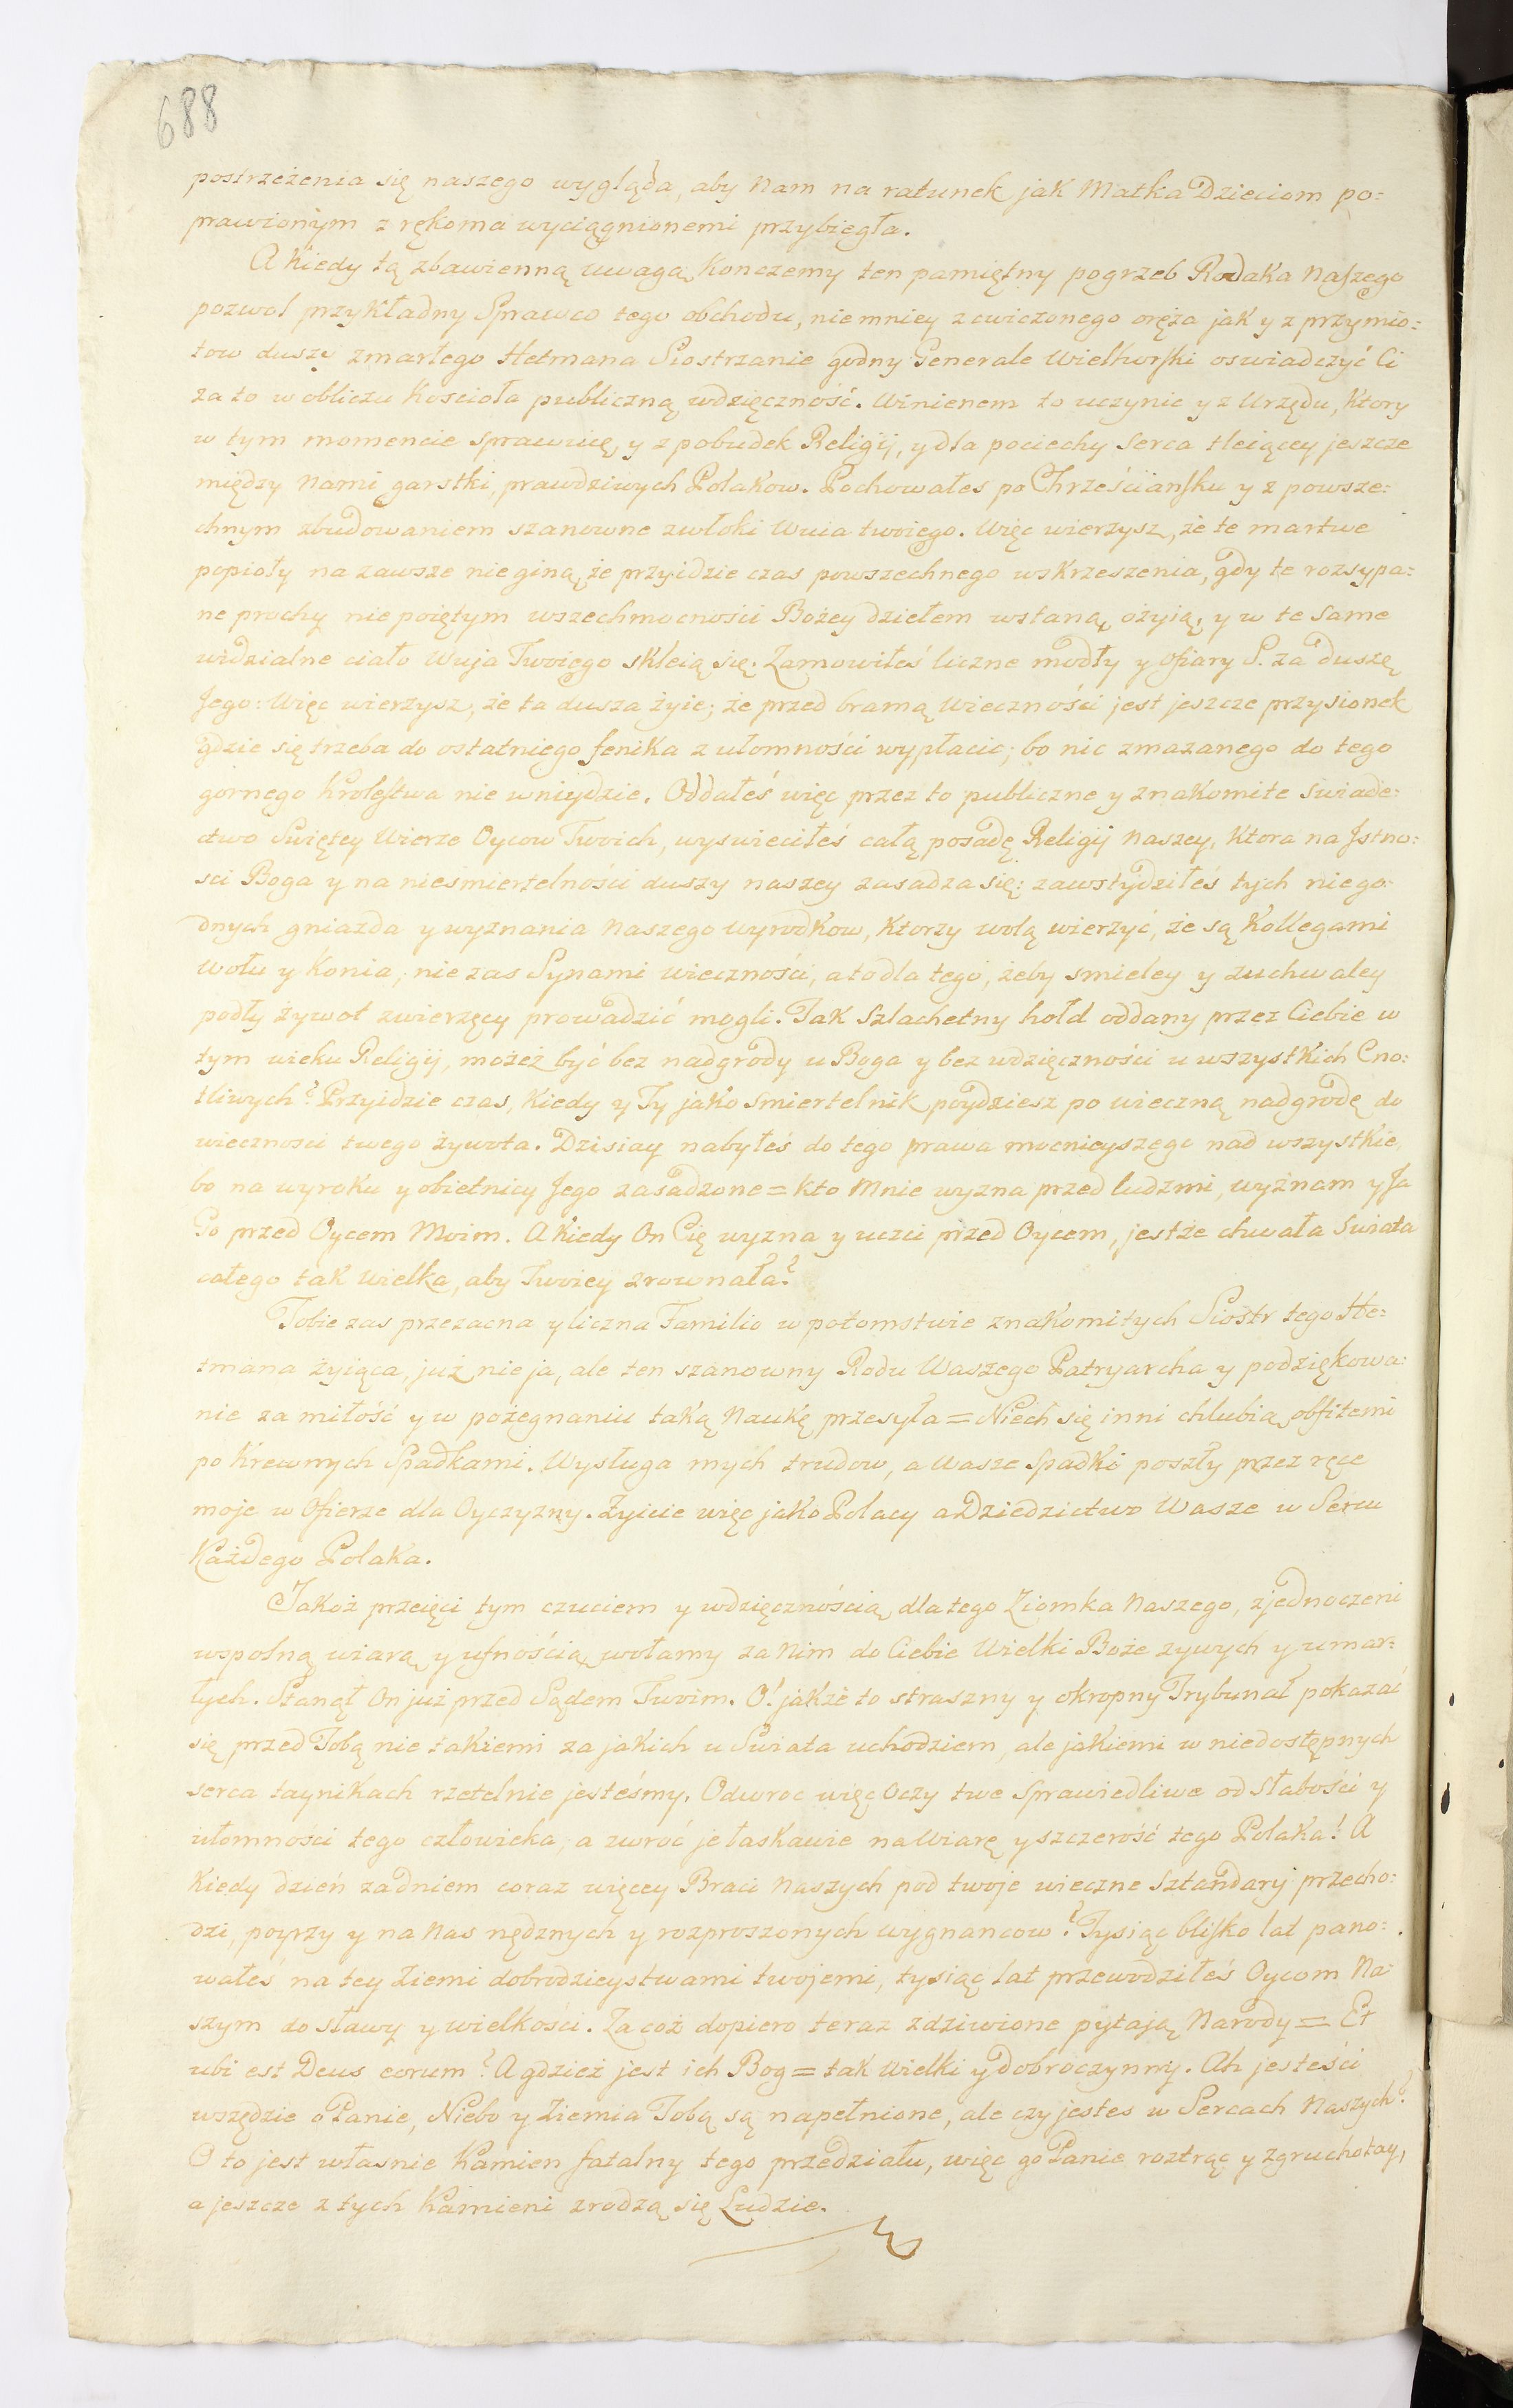 688
postrzeżenia się naszego wygłąda, aby Nam na ratunek jak Matka Dzieciom po=
prawionym z rękoma wyciągnionemi przybiegła.
A Kiedy tą zbawienną uwagą Konczemy ten pamiętny pogrzeb Rodaka Naszego
pozwol przykładny Sprawco tego obchodu, niemniey z cwiczonego oręża jak y z przymio=
tow duszy zmarłego Hetmana Siostrzanie godny Generale Wielhurski oswiadczyć Ci
za to w obliczu Koscioła publiczną wdzięczność. Winienem to uczynic y z Urzędu, Ktory
w tym momencie sprawuię, y z pobudek Religij, y dla pociechy Serca tleiącey jeszcze
między Nami garstki, prawdziwych Polakow. Pochowałes po Chrześciańsku y z powsze=
chnym zbudowaniem szanowne zwłoki Wuia twoiego. Więc wierzysz, że te martwe
popioły na zawsze nie giną, że przyidzie czas powszechnego wskrzeszenia, gdy te rozsypa=
ne prochy nie poiętym wszechmocności Bożey dziełem wstaną, ożyią, y w te same
widzialne ciało Wuja Twoiego skleią się. Zamowiłeś liczne modły y ofiary S. za duszę
Jego: Więc wierzysz, że ta dusza żyie; że przed bramą Wieczności jest jeszcze przysionek
gdzie się trzeba do ostatniego fenika z ułomności wypłacic; bo nic zmazanego do tego
gornego Krolestwa nie wniydzie. Oddałeś więc przez to publiczne y znakomite Swiade=
ctwo Swiętey Wierze Oycow Twoich, wyswieciłeś całą posadę Religij Naszey, Ktora na Jstno=
sci Boga y na niesmiertelności duszy naszey zasadza się: zawstydziłeś tych niego=
dnych gniazda y wyznania Naszego wyrodkow, Ktorzy wolą wierzyć, że są Kollegami
Wołu y Konia, nie zas Synami wieczności, a to dla tego, żeby smieley y zuchwaley
podły żywot zwierzęcy prowadzić mogli. Tak Szlachetny hołd oddany przez Ciebie w
tym wieku Religij, możeż być bez nadgrody u Boga y bez wdzięczności u wszystkich Cno=
tliwych? Przyidzie czas, Kiedy y Ty jako smiertelnik poydziesz po wieczną nadgrodę do
wieczności twego żywota. Dzisiay nabyłeś do tego prawa mocnieyszego nad wszystkie
bo na wyroku y obietnicy Jego zasadzone = Kto Mnie wyzna przed ludzmi, wyznam y Ja
Go przed Oycem Moim. A Kiedy On Cię wyzna y uczci przed Oycem, jestże chwała Swiata
całego tak wielka, aby Twoiey zrownała?
Tobie zas przezacna y liczna Familio w potomstwie znakomitych Siostr tego He=
tmana żyiąca, już nie ja, ale ten szanowny Rodu Waszego Patryarcha y podziękowa=
nie za miłość y w pożegnaniu taką Naukę przesyła = Niech się inni chlubią obfitemi
po Krewnych Spadkami. Wysługa mych trudow, a Wasze Spadki poszły przez ręce
moje w Ofierze dla Oyczyzny. Żyicie więc jako Polacy a Dziedzictwo Wasze w Sercu
Każdego Polaka.
Jakoż przeięci tym czuciem y wdzięcznością dla tego Ziomka Naszego, zjednoczeni
wspolną wiarą y ufnością wołamy za Nim do Ciebie Wielki Boże zywych y umar=
łych. Stanął On już przed Sądem Twoim. O! jakże to straszny y okropny Trybunał pokazać
się przed Tobą nie takiemi za jakich u Swiata uchodziem, ale jakiemi w niedostępnych
serca taynikach rzetelnie jesteśmy. Odwroc więc oczy twe Sprawiedliwe od Słabości y
ułomności tego człowieka, a zwroć je łaskawie na Wiarę y szczerość tego Polaka! A
Kiedy dzień za dniem coraz więcey Braci Naszych pod twoje wieczne Sztandary przecho=
dzi, poyrzy y na Nas nędznych y rozproszonych wygnancow? Tysiąc blisko lat pano=
wałeś na tey Ziemi dobrodzieystwami twojemi, tysiąc lat przewodziłeś Oycom Na=
szym do sławy y wielkości. Za coż dopiero teraz zdziwione pytają Narody = Et
ubi est Deus eorum? A gdzież jest ich Bog = tak Wielki y dobroczynny. Ah jesteści
wszędzie o Panie, Niebo y Ziemia Tobą są napełnione, ale czy jestes w Sercach Naszych?
O to jest własnie Kamien fatalny tego przedziału, więc go Panie roztrąc y zgruchotay,
a jeszcze z tych Kamieni zrodzą się Ludzie.